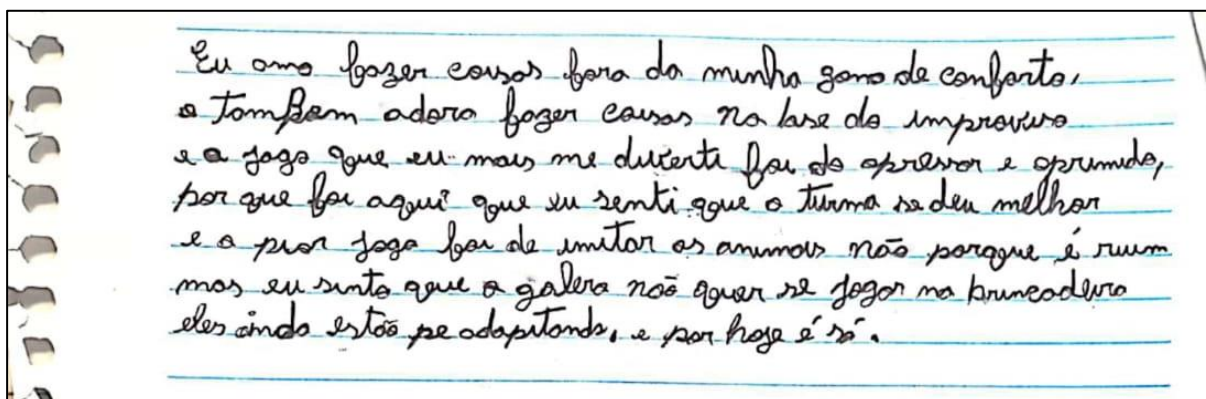 Eu amo fazer coisas fora da minha zona de conforto,
e também adoro fazer coisas na base do improviso
e o jogo que eu mais me diverti foi do opressor e oprimido,
por que foi aqui que eu senti que a turma se deu melhor
e o pior jogo foi de imitar os animais não porque é ruim
mas eu sinto que a galera não quer se jogar na brincadeira
eles ainda estão se adapitando, e por hoje é só.